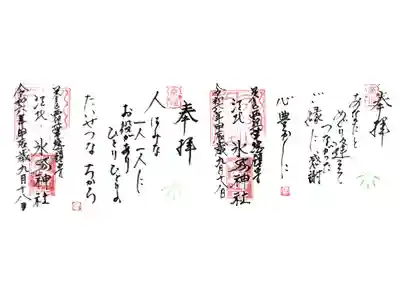 奉拝
あなたと
めぐり逢えて
つながった
ご縁に感謝
心豊かに
江北 氷川神社
令和六年甲辰歳九月十八日
奉拝
人はみな
一人一人に
お役があり
ひとりひとりの
たいせつな ちから
江北 氷川神社
令和六年甲辰歳九月十八日